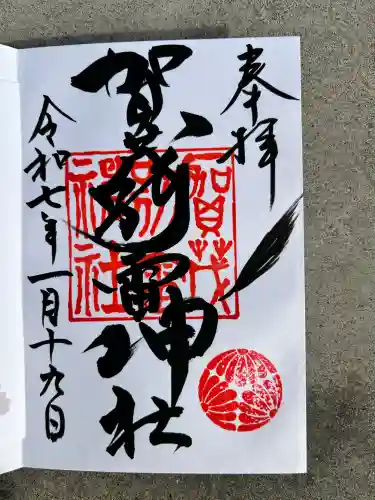 奉拝
賀茂別雷神社
令和七年一月十九日
賀茂
別雷
神社